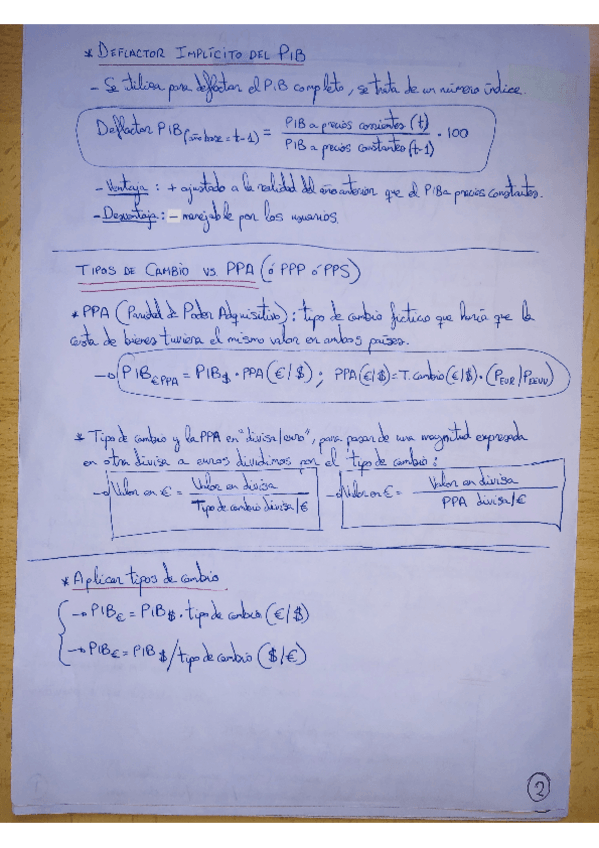 * DEFLACTOR IMPLÍCITO DEL PIB
- Se utiliza para deflactar el PIB completo, se trata de un número índice.
Deflactor PIB (año base = t-1) = PIB a precios corrientes (t) / PIB a precios constantes (t-1) · 100
- Ventaja: + ajustado a la realidad del año anterior que el PIB a precios constantes.
- Desventaja: - manejable por los usuarios.
TIPOS DE CAMBIO VS. PPA (ó PPP ó PPS)
* PPA (Paridad de Poder Adquisitivo): tipo de cambio ficticio que haría que la
cesta de bienes tuviera el mismo valor en ambos países.
→ PIB€PPA = PIB$ · PPA (€/$) ; PPA (€/$) = T. cambio (€/$) · (PEUR/PEEUU)
* Tipo de cambio y la PPA en "divisa/euro", para pasar de una magnitud expresada
en otra divisa a euros dividimos por el tipo de cambio:
→ Valor en € = Valor en divisa / Tipo de cambio divisa/€ → Valor en € = Valor en divisa / PPA divisa/€
* Aplicar tipos de cambio
→ PIB€ = PIB$ · tipo de cambio (€/$)
→ PIB€ = PIB$ / tipo de cambio ($/€)
2